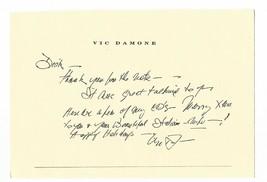 VIC DAMONE
Dear
Thank you for the note —
It was great talking to you
Here are a few of my CD's — Merry Xmas
to you & your Beautiful Italian —!
Happy Holidays —
Vic D